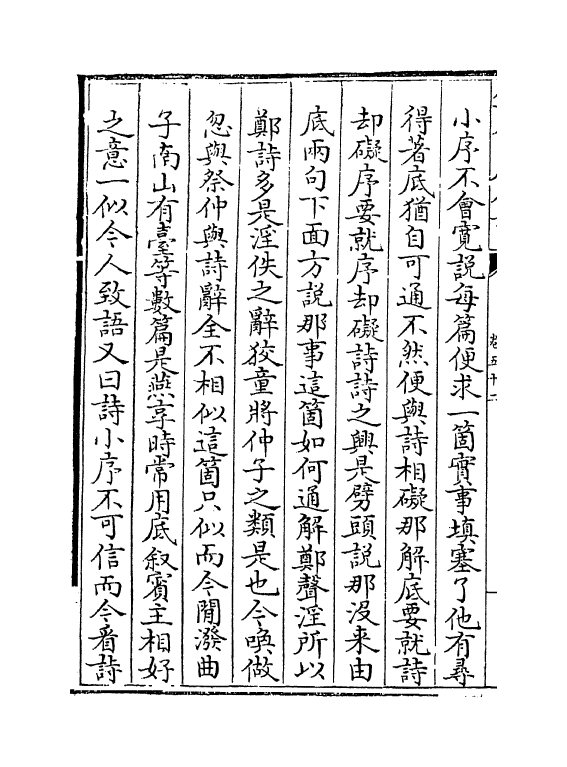 小序不會寛説每篇便求一箇實事填塞了他有尋
得著底猶自可通不然便與詩相礙那解底要就詩
却礙序要就序却礙詩詩之興是劈頭説那没來由
底兩句下面方説那事這箇如何通解鄭聲淫所以
鄭詩多是淫佚之辭狡童將仲子之類是也今喚做
忽與祭仲與詩辭全不相似這箇只似而今閒潑曲
子南山有臺等數篇是燕享時常用底叙賓主相好
之意一似今人致語又曰詩小序不可信而今看詩
卷五十二